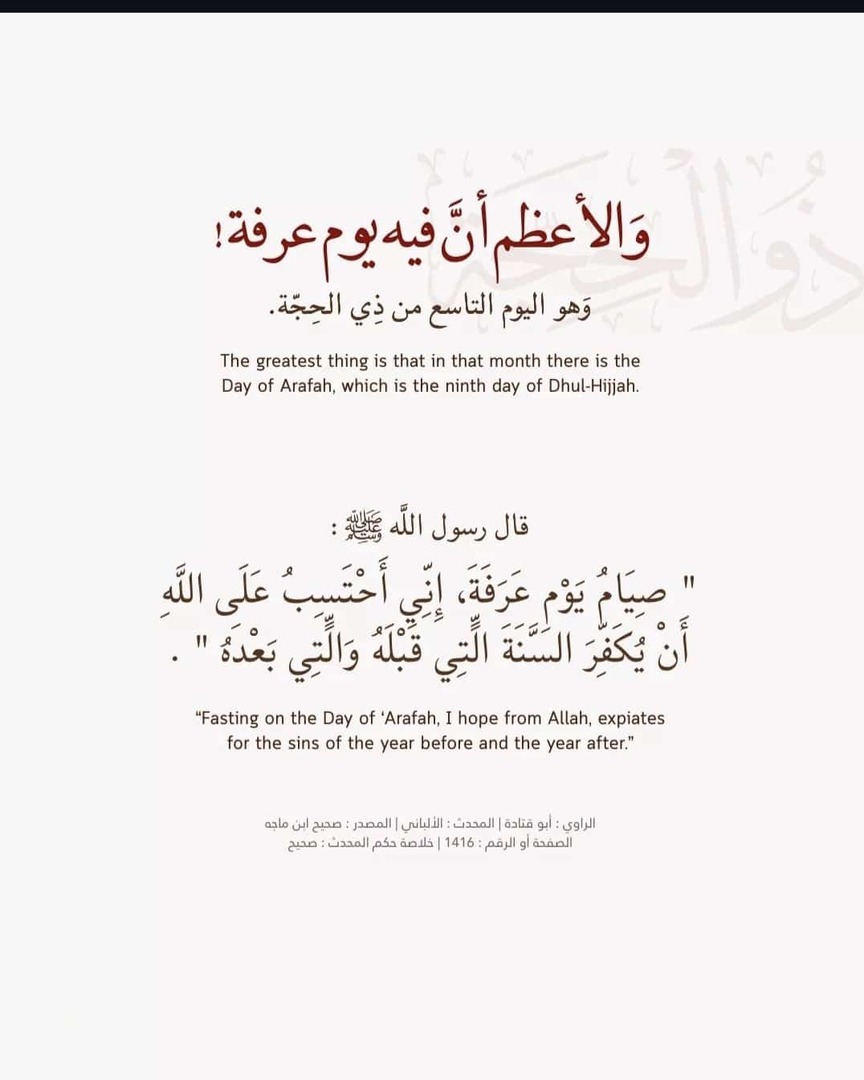 ذُو الْحِجَّة
وَالأعظم أنَّ فيه يوم عرفة!
وَهو اليوم التاسع من ذِي الحِجّة.
The greatest thing is that in that month there is the
Day of Arafah, which is the ninth day of Dhul-Hijjah.
قال رسول اللَّه ﷺ :
" صِيَامُ يَوْمِ عَرَفَةَ، إِنِّي أَحْتَسِبُ عَلَى اللَّهِ
أَنْ يُكَفِّرَ السَّنَةَ الَّتِي قَبْلَهُ وَالَّتِي بَعْدَهُ " .
“Fasting on the Day of ‘Arafah, I hope from Allah, expiates
for the sins of the year before and the year after.”
الراوي : أبو قتادة | المحدث : الألباني | المصدر : صحيح ابن ماجه
الصفحة أو الرقم : 1416 | خلاصة حكم المحدث : صحيح